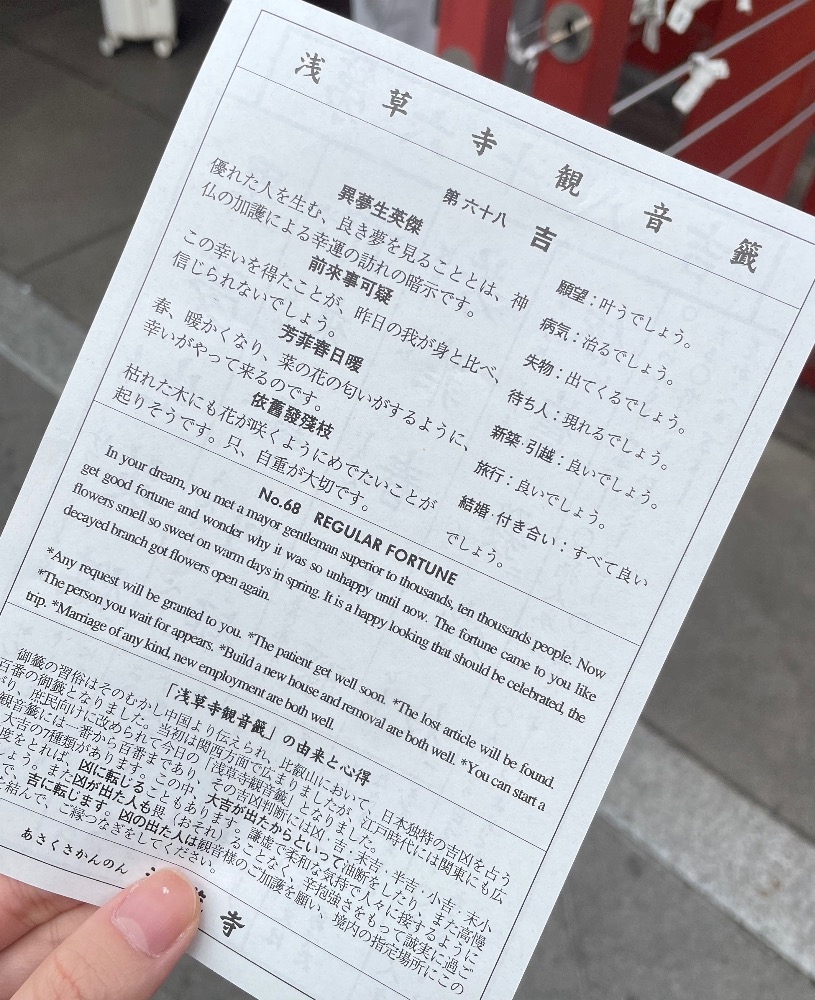 浅草寺観音籤
第六十八 吉
異夢生英傑
優れた人を生む、良き夢を見ることとは、神
仏の加護による幸運の訪れの暗示です。
前來事可疑
この幸いを得たことが、昨日の我が身と比べ、
信じられないでしょう。
芳菲春日暖
春、暖かくなり、菜の花の匂いがするように、
幸いがやって来るのです。
依舊發殘枝
枯れた木にも花が咲くようにめでたいことが
起りそうです。只、自重が大切です。
願望：叶うでしょう。
病気：治るでしょう。
失物：出てくるでしょう。
待ち人：現れるでしょう。
新築・引越：良いでしょう。
旅行：良いでしょう。
結婚・付き合い：すべて良い
でしょう。
No.68 REGULAR FORTUNE
In your dream, you met a mayor gentleman superior to thousands, ten thousands people. Now
get good fortune and wonder why it was so unhappy until now. The fortune came to you like
flowers smell so sweet on warm days in spring. It is a happy looking that should be celebrated, the
decayed branch got flowers open again.
*Any request will be granted to you. *The patient get well soon. *The lost article will be found.
*The person you wait for appears. *Build a new house and removal are both well. *You can start a
trip. *Marriage of any kind, new employment are both well.
「浅草寺観音籤」の由来と心得
御籤の習俗はそのむかし中国より伝えられ、比叡山において、日本独特の吉凶を占う
百番の御籤となりました。当初は関西方面で広まりましたが、江戸時代には関東にも広
がり、庶民向けに改められて今日の「浅草寺観音籤」となりました。
観音籤には一番から百番まであり、その吉凶判断には凶・吉・末吉・半吉・小吉・末小
大吉の7種類があります。この中、大吉が出たからといって油断をしたり、また高慢
度をとれば、凶に転じることもあります。謙虚で柔和な気持で人々に接するように
ょう。また凶が出た人も畏（おそれ）ることなく、辛抱強さをもって誠実に過ご
で、吉に転じます。凶の出た人は観音様のご加護を願い、境内の指定場所にこの
結んで、ご縁つなぎをしてください。
あさくさかんのん
寺